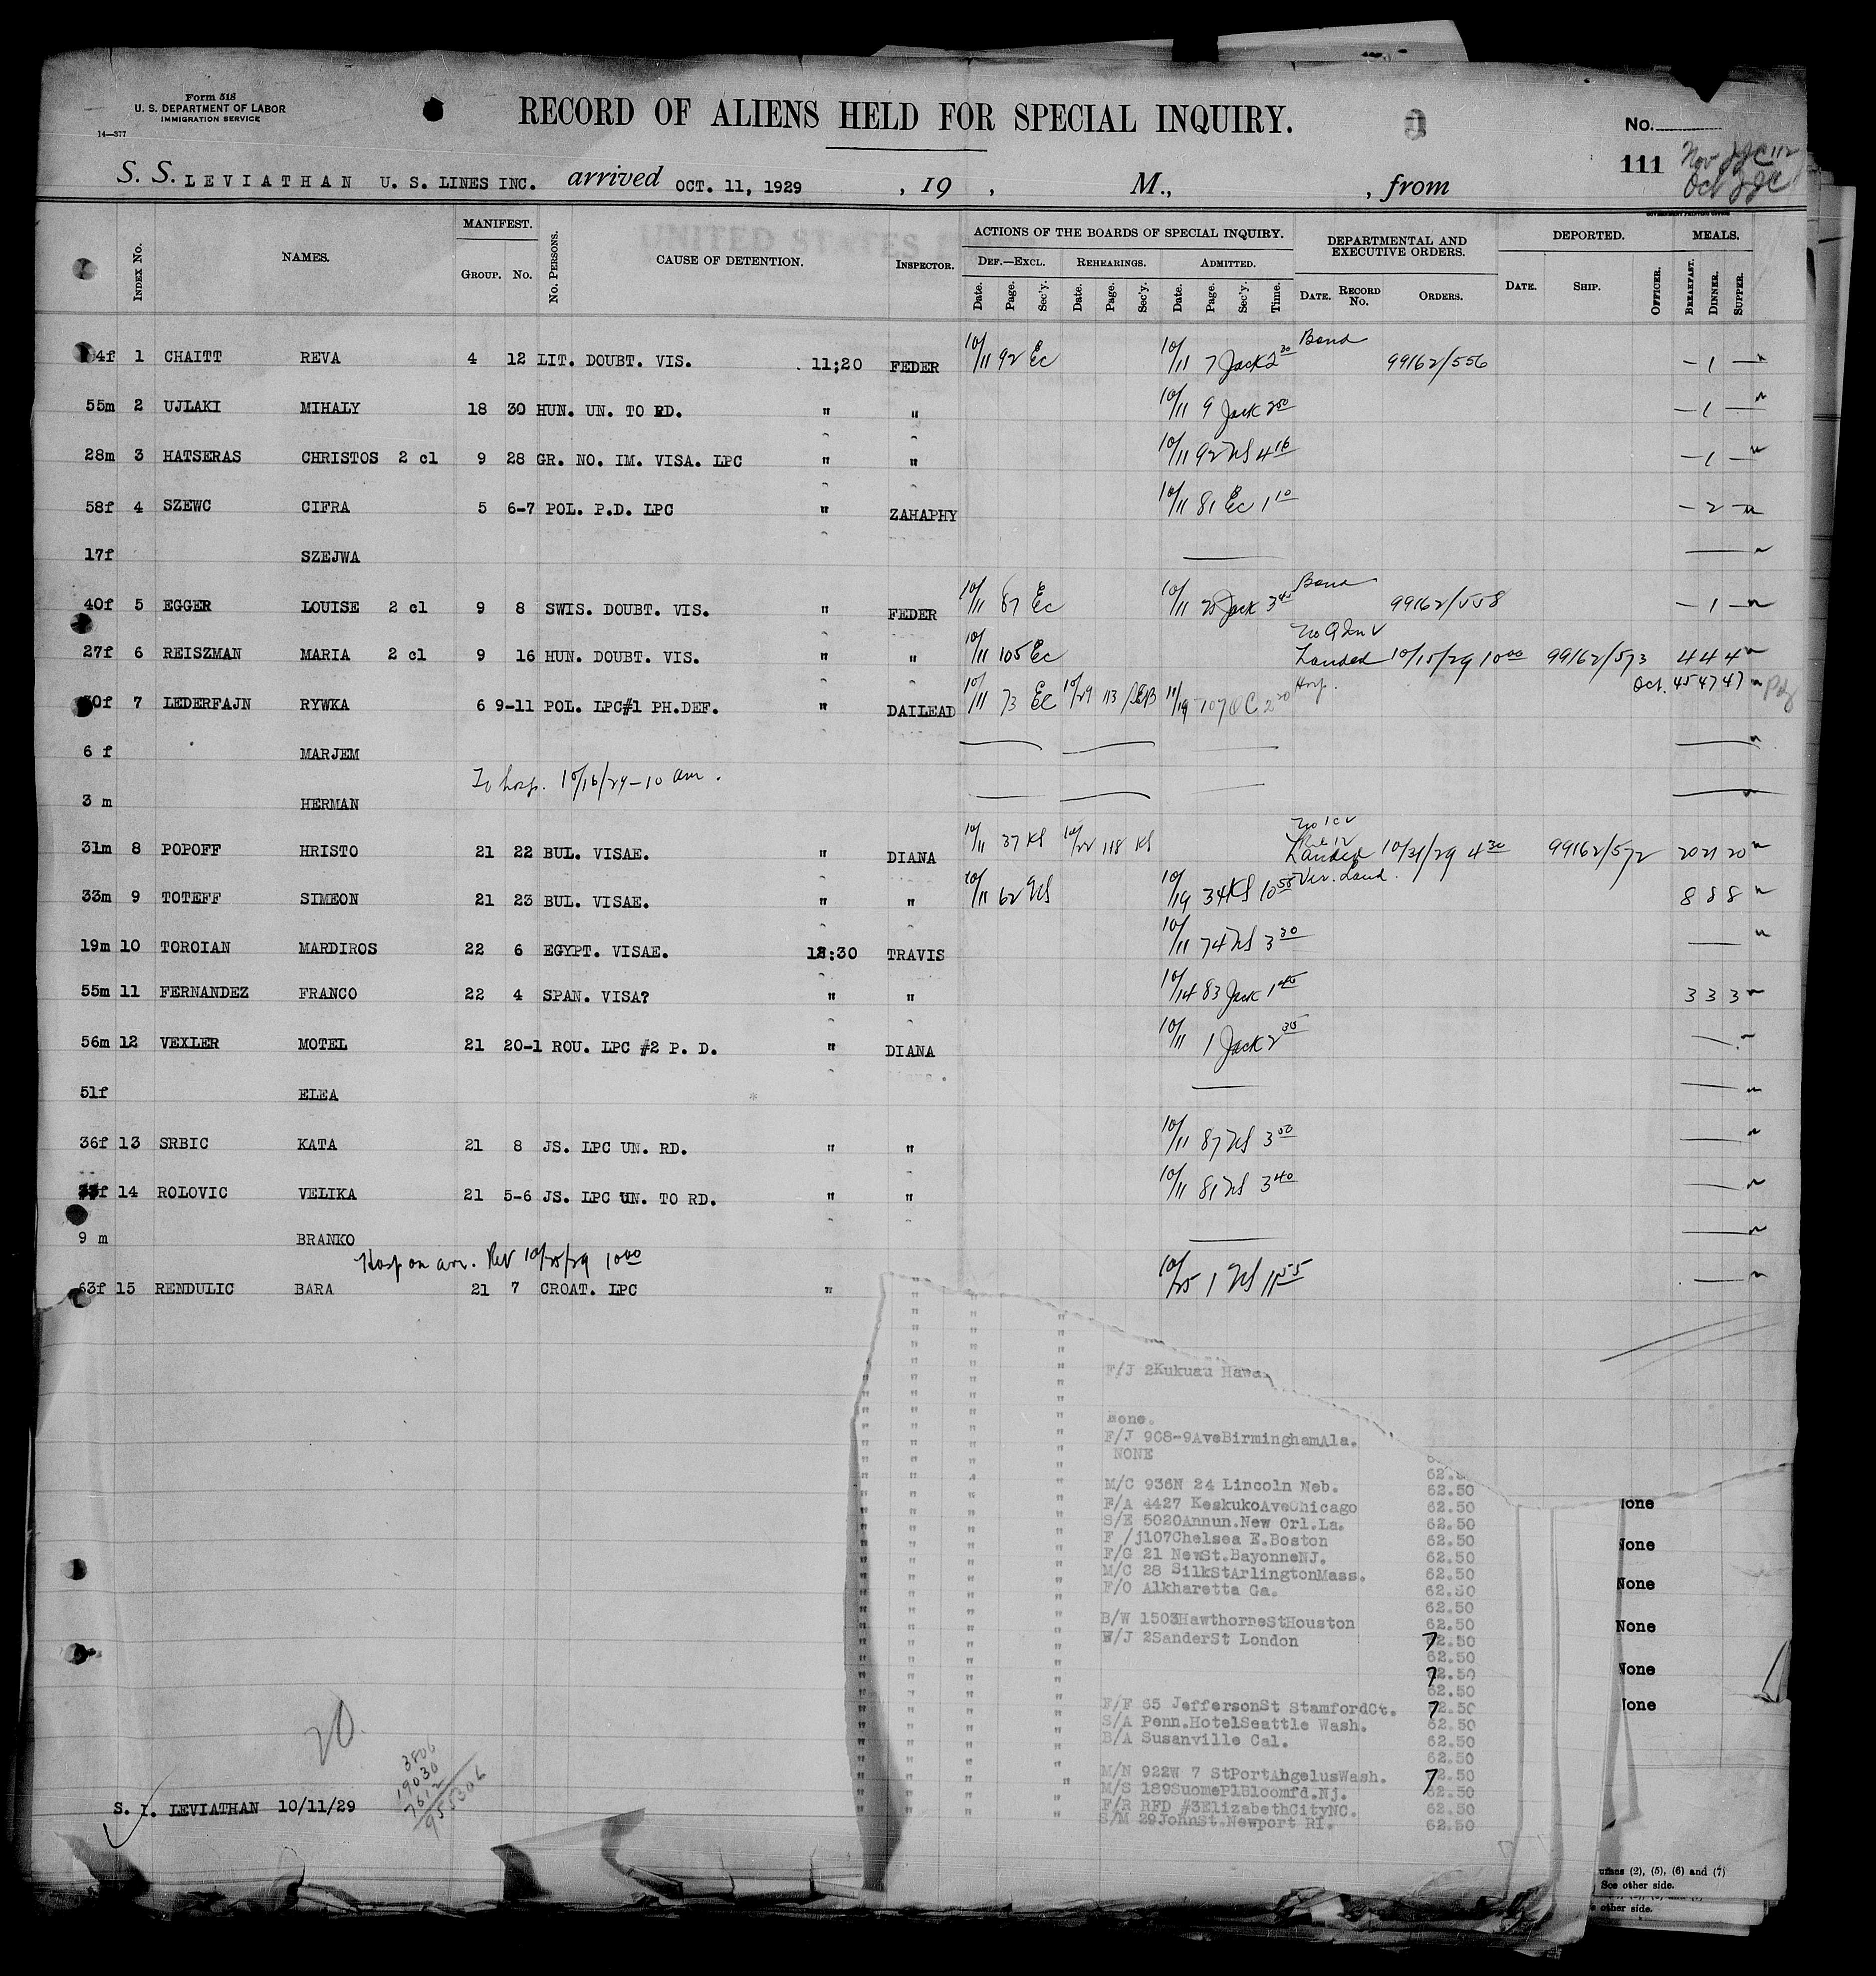 Form 518
U. S. DEPARTMENT OF LABOR
IMMIGRATION SERVICE
14—377
RECORD OF ALIENS HELD FOR SPECIAL INQUIRY.
No.
111
S. S. LEVIATHAN U. S. LINES INC. arrived OCT. 11, 1929 , 19 , M., , from
GOVERNMENT PRINTING OFFICE
INDEX NO. NAMES. MANIFEST. GROUP. NO. NO. PERSONS. CAUSE OF DETENTION. INSPECTOR. ACTIONS OF THE BOARDS OF SPECIAL INQUIRY. DEPARTMENTAL AND EXECUTIVE ORDERS. DEPORTED. MEALS.
DEF.—EXCL. REHEARINGS. ADMITTED.
Date. Page. Sec'y. Date. Page. Sec'y. Date. Page. Sec'y. Time. DATE. RECORD NO. ORDERS. DATE. SHIP. OFFICER. BREAKFAST. DINNER. SUPPER.
4f 1 CHAITT REVA 4 12 LIT. DOUBT. VIS. 11;20 FEDER 10/11 92 Ec 10/11 7 Jack 2 30 Bond 99162/556 — 1 —
55m 2 UJLAKI MIHALY 18 30 HUN. UN. TO RD. " " 10/11 9 Jack 2 50 — 1 —
28m 3 HATSERAS CHRISTOS 2 cl 9 28 GR. NO. IM. VISA. LPC " " 10/11 92 4 16 — 1 —
58f 4 SZEWC CIFRA 5 6-7 POL. P.D. LPC " ZAHAPHY 10/11 81 Ec 1 10 — 2 —
17f SZEJWA
40f 5 EGGER LOUISE 2 cl 9 8 SWIS. DOUBT. VIS. " FEDER 10/11 87 Ec 10/11 20 Jack 3 40 Bond 99162/558 — 1 —
27f 6 REISZMAN MARIA 2 cl 9 16 HUN. DOUBT. VIS. " " 10/11 105 Ec Landed 10/15/29 10 00 99162/573 4 4 4
30f 7 LEDERFAJN RYWKA 6 9-11 POL. LPC#1 PH.DEF. " DAILEAD 10/11 73 Ec 10/29 113 11/19 107 2 20 Hosp. Oct. 45 47 47
6 f MARJEM
To hosp. 10/16/29 — 10 am.
3 m HERMAN
31m 8 POPOFF HRISTO 21 22 BUL. VISAE. " DIANA 10/11 37 KS 10/22 118 KS Landed 10/31/29 4 30 99162/572 20 21 20
33m 9 TOTEFF SIMEON 21 23 BUL. VISAE. " " 10/11 62 10/19 34 KS 10 58 Ver. Land. 8 8 8
19m 10 TOROIAN MARDIROS 22 6 EGYPT. VISAE. 12:30 TRAVIS 10/11 74 3 30
55m 11 FERNANDEZ FRANCO 22 4 SPAN. VISA? " " 10/14 83 Jack 1 40 3 3 3
56m 12 VEXLER MOTEL 21 20-1 ROU. LPC #2 P. D. " DIANA 10/11 1 Jack 2 35
51f ELEA
36f 13 SRBIC KATA 21 8 JS. LPC UN. RD. " " 10/11 87 3 50
33f 14 ROLOVIC VELIKA 21 5-6 JS. LPC UN. TO RD. " " 10/11 81 3 40
9 m BRANKO
Hosp on arr. Ret 10/25/29 10 00
63f 15 RENDULIC BARA 21 7 CROAT. LPC " 10/25 1 11 55
F/J 2Kukuau Hawa
None.
F/J 908-9AveBirminghamAla.
NONE
62.5
M/C 936N 24 Lincoln Neb. 62.50
F/A 4427 KeskukoAveChicago 62.50 None
S/E 5020Annun.New Orl.La. 62.50
F /j107Chelsea E.Boston 62.50 None
F/G 21 NewSt.BayonneNJ. 62.50
M/C 28 SilkStArlingtonMass. 62.50 None
F/O Alkharetta Ga. 62.50
62.50
B/W 1503HawthorneStHouston 62.50 None
W/J 2SanderSt London 72.50
62.50
72.50 None
62.50
F/F 65 JeffersonSt StamfordCt. 72.50 None
S/A Penn.HotelSeattle Wash. 62.50
B/A Susanville Cal. 62.50
62.50
M/N 922W 7 StPortAngelusWash. 72.50
M/S 189SuomePlBloomfd.Nj. 62.50
F/R RFD #3ElizabethCityNC. 62.50
S/M 29JohnSt.Newport RI. 62.50
20
3806
19030
7612
S. I. LEVIATHAN 10/11/29
umns (2), (5), (6) and (7)
See other side.
other side.